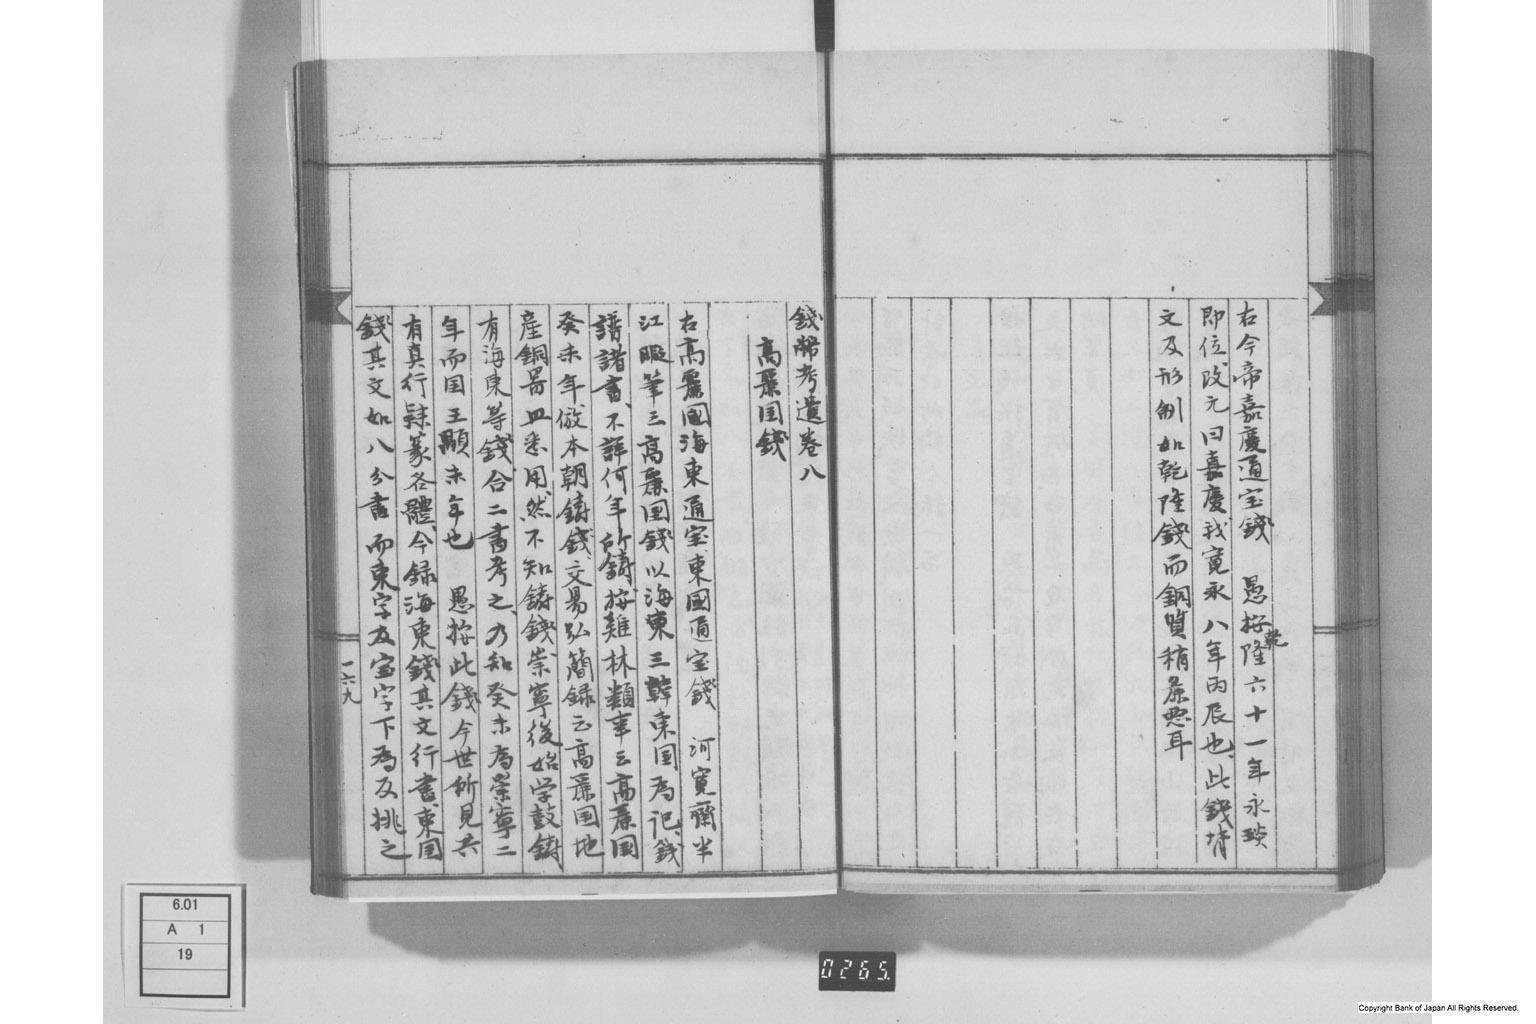 右今帝嘉慶通宝錢 愚按乾隆六十一年永琰
即位改元曰嘉慶我寛永八年丙辰也此錢背
文及形制如乾隆錢而銅質稍麁悪耳
錢幣考遺巻八
高麗国錢
右高麗國海東通宝東國通宝錢 河寛齋半
江暇筆云高麗国錢以海東三韓東国為記錢
譜諸書不詳何年所鑄按雞林類事云高麗国
癸未年倣本朝鑄錢交易弘簡録云高麗国地
産銅器皿悉用然不知鑄錢崇寧後始学鼓鑄
有海東等錢合二書考之乃知癸未為崇寧二
年而国王顒未年也 愚按此錢今世所見共
有真行隷篆各體今録海東錢其文行書東国
錢其文如八分書而東字友宝字下為反挑之
一六九
6.01
A 1
19
0265
Copyright Bank of Japan All Rights Reserved.